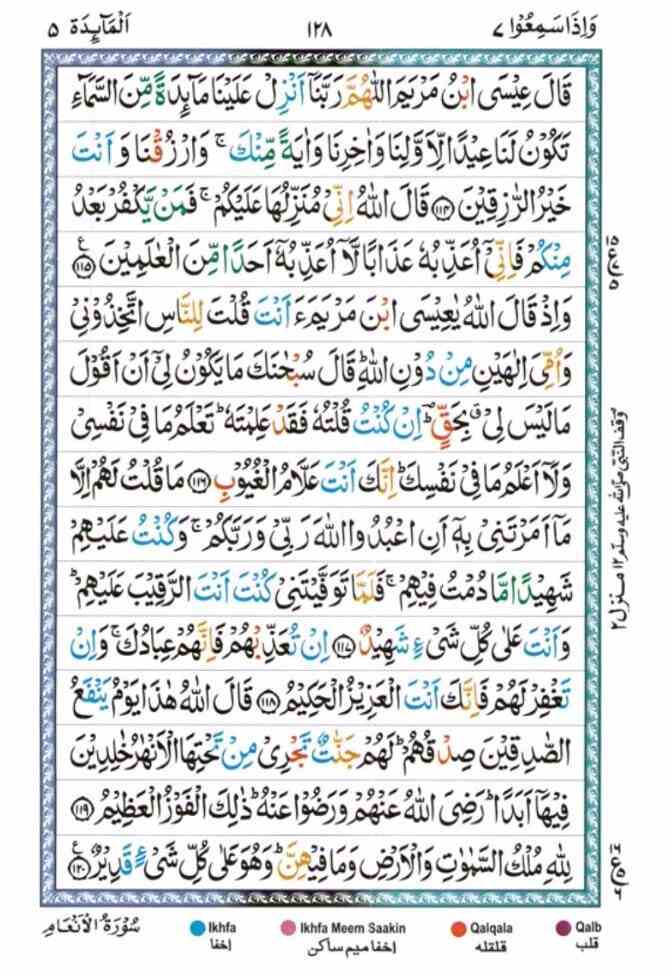 وَاِذَا سَمِعُوْا ٧ ١٢٨ اَلْمَآئِدَة ٥
قَالَ عِيْسَى ابْنُ مَرْيَمَ اللّٰهُمَّ رَبَّنَاۤ اَنْزِلْ عَلَيْنَا مَآئِدَةً مِّنَ السَّمَآءِ
تَكُوْنُ لَنَا عِيْدًا لِّاَوَّلِنَا وَاٰخِرِنَا وَاٰيَةً مِّنْكَ ۚ وَارْزُقْنَا وَاَنْتَ
خَيْرُ الرّٰزِقِيْنَ ﴿١١٤﴾ قَالَ اللّٰهُ اِنِّيْ مُنَزِّلُهَا عَلَيْكُمْ ۚ فَمَنْ يَّكْفُرْ بَعْدُ
مِنْكُمْ فَاِنِّيْۤ اُعَذِّبُهٗ عَذَابًا لَّاۤ اُعَذِّبُهٗۤ اَحَدًا مِّنَ الْعٰلَمِيْنَ ﴿١١٥﴾ ع
وَاِذْ قَالَ اللّٰهُ يٰعِيْسَى ابْنَ مَرْيَمَ ءَاَنْتَ قُلْتَ لِلنَّاسِ اتَّخِذُوْنِيْ
وَاُمِّيَ اِلٰهَيْنِ مِنْ دُوْنِ اللّٰهِ ؕ قَالَ سُبْحٰنَكَ مَا يَكُوْنُ لِيْۤ اَنْ اَقُوْلَ
مَا لَيْسَ لِيْ ۗ بِحَقٍّ ؕ اِنْ كُنْتُ قُلْتُهٗ فَقَدْ عَلِمْتَهٗ ؕ تَعْلَمُ مَا فِيْ نَفْسِيْ
وَلَاۤ اَعْلَمُ مَا فِيْ نَفْسِكَ ؕ اِنَّكَ اَنْتَ عَلَّامُ الْغُيُوْبِ ﴿١١٦﴾ مَا قُلْتُ لَهُمْ اِلَّا
مَاۤ اَمَرْتَنِيْ بِهٖۤ اَنِ اعْبُدُوا اللّٰهَ رَبِّيْ وَرَبَّكُمْ ۚ وَكُنْتُ عَلَيْهِمْ
شَهِيْدًا مَّا دُمْتُ فِيْهِمْ ۚ فَلَمَّا تَوَفَّيْتَنِيْ كُنْتَ اَنْتَ الرَّقِيْبَ عَلَيْهِمْ ؕ
وَاَنْتَ عَلٰى كُلِّ شَيْءٍ شَهِيْدٌ ﴿١١٧﴾ اِنْ تُعَذِّبْهُمْ فَاِنَّهُمْ عِبَادُكَ ۚ وَاِنْ
تَغْفِرْ لَهُمْ فَاِنَّكَ اَنْتَ الْعَزِيْزُ الْحَكِيْمُ ﴿١١٨﴾ قَالَ اللّٰهُ هٰذَا يَوْمُ يَنْفَعُ
الصّٰدِقِيْنَ صِدْقُهُمْ ؕ لَهُمْ جَنّٰتٌ تَجْرِيْ مِنْ تَحْتِهَا الْاَنْهٰرُ خٰلِدِيْنَ
فِيْهَاۤ اَبَدًا ؕ رَضِيَ اللّٰهُ عَنْهُمْ وَرَضُوْا عَنْهُ ؕ ذٰلِكَ الْفَوْزُ الْعَظِيْمُ ﴿١١٩﴾
لِلّٰهِ مُلْكُ السَّمٰوٰتِ وَالْاَرْضِ وَمَا فِيْهِنَّ ؕ وَهُوَ عَلٰى كُلِّ شَيْءٍ قَدِيْرٌ ﴿١٢٠﴾ ع
وقف النبي صلى الله عليه وسلم ١٢ منزل ٢
سُوْرَةُ الْاَنْعَام Ikhfa Ikhfa Meem Saakin Qalqala Qalb
اخفا اخفا میم ساکن قلقله قلب